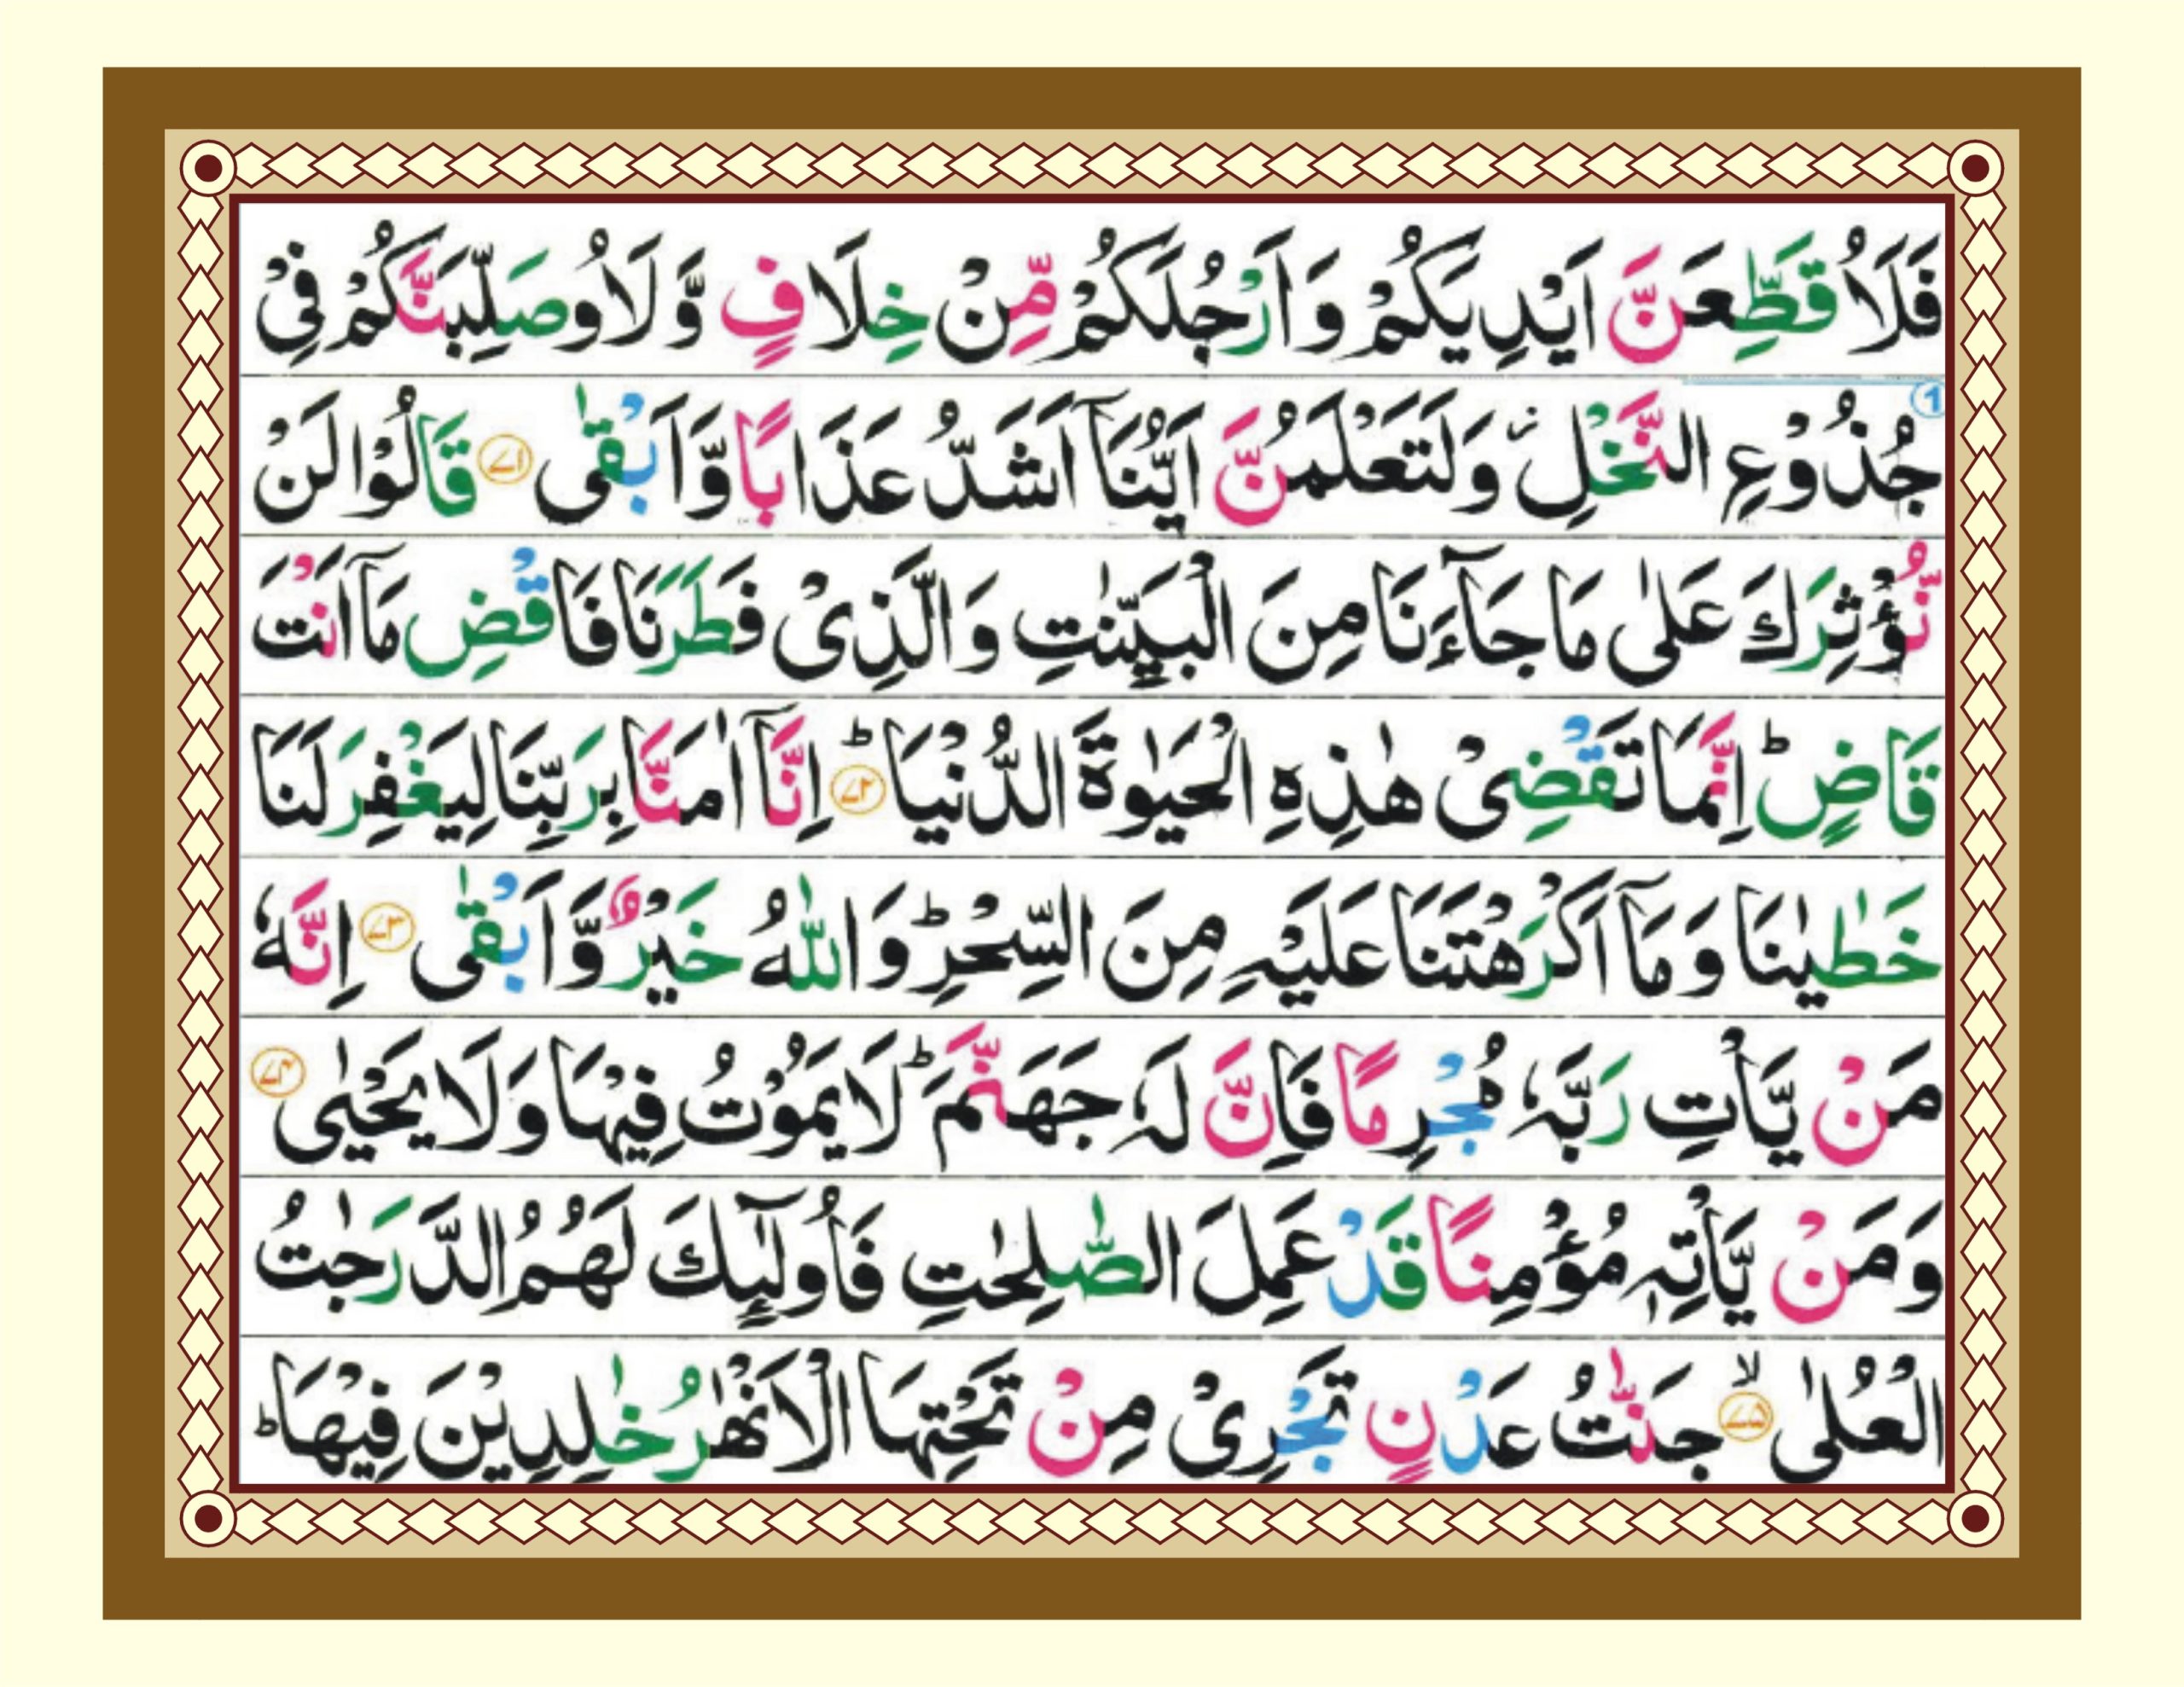 فَلَاُقَطِّعَنَّ اَیْدِیَکُمْ وَاَرْجُلَکُمْ مِّنْ خِلَافٍ وَّلَاُوصَلِّبَنَّکُمْ فِیْ
جُذُوْعِ النَّخْلِ ز وَلَتَعْلَمُنَّ اَیُّنَاۤ اَشَدُّ عَذَابًا وَّاَبْقٰی ﴿۷۱﴾ قَالُوْا لَنْ
نُّؤْثِرَکَ عَلٰی مَا جَآءَنَا مِنَ الْبَیِّنٰتِ وَالَّذِیْ فَطَرَنَا فَاقْضِ مَاۤ اَنْتَ
قَاضٍ ؕ اِنَّمَا تَقْضِیْ هٰذِهِ الْحَیٰوةَ الدُّنْیَا ؕ ﴿۷۲﴾ اِنَّاۤ اٰمَنَّا بِرَبِّنَا لِیَغْفِرَ لَنَا
خَطٰیٰنَا وَمَاۤ اَکْرَهْتَنَا عَلَیْهِ مِنَ السِّحْرِ ؕ وَاللّٰهُ خَیْرٌ وَّاَبْقٰی ﴿۷۳﴾ اِنَّهٗ
مَنْ یَّاْتِ رَبَّهٗ مُجْرِمًا فَاِنَّ لَهٗ جَهَنَّمَ ؕ لَا یَمُوْتُ فِیْهَا وَلَا یَحْیٰی ﴿۷۴﴾
وَمَنْ یَّاْتِهٖ مُؤْمِنًا قَدْ عَمِلَ الصّٰلِحٰتِ فَاُولٰٓئِکَ لَهُمُ الدَّرَجٰتُ
الْعُلٰی ۙ ﴿۷۵﴾ جَنّٰتُ عَدْنٍ تَجْرِیْ مِنْ تَحْتِهَا الْاَنْهٰرُ خٰلِدِیْنَ فِیْهَا ؕ